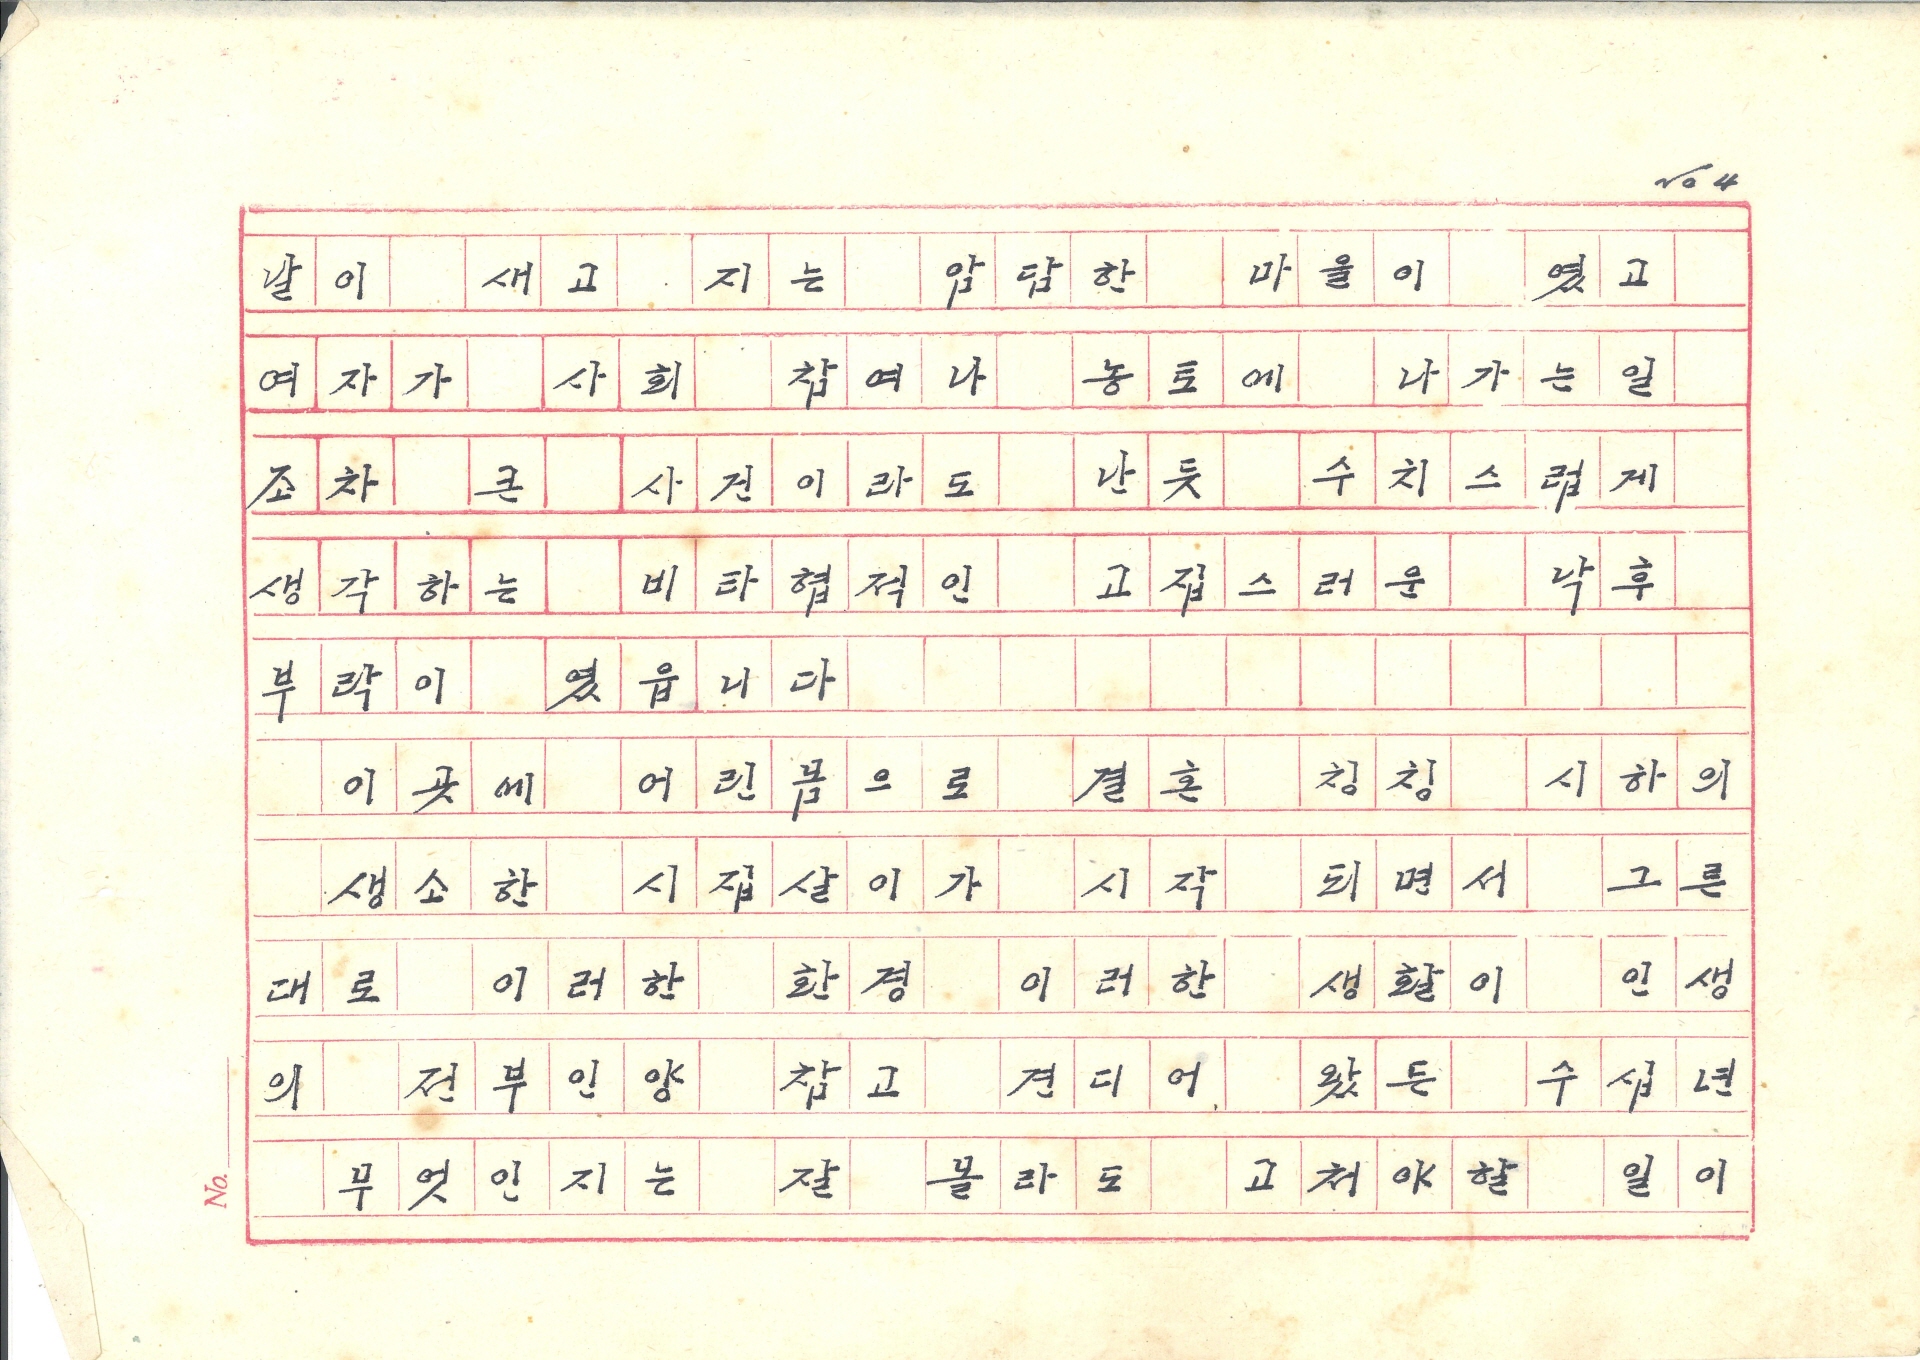 No 4
날이 새고 지는 암담한 마을이 였고
여자가 사회 참여나 농토에 나가는일
조차 큰 사건이라도 난듯 수치스럽게
생각하는 비타협적인 고집스러운 낙후
부락이 였읍니다
이곳에 어린몸으로 결혼 칭칭 시하의
생소한 시집살이가 시작 되면서 그른
대로 이러한 환경 이러한 생활이 인생
의 전부인양 참고 견디어 왔든 수십년
무엇인지는 잘 몰라도 고처야할 일이
No.